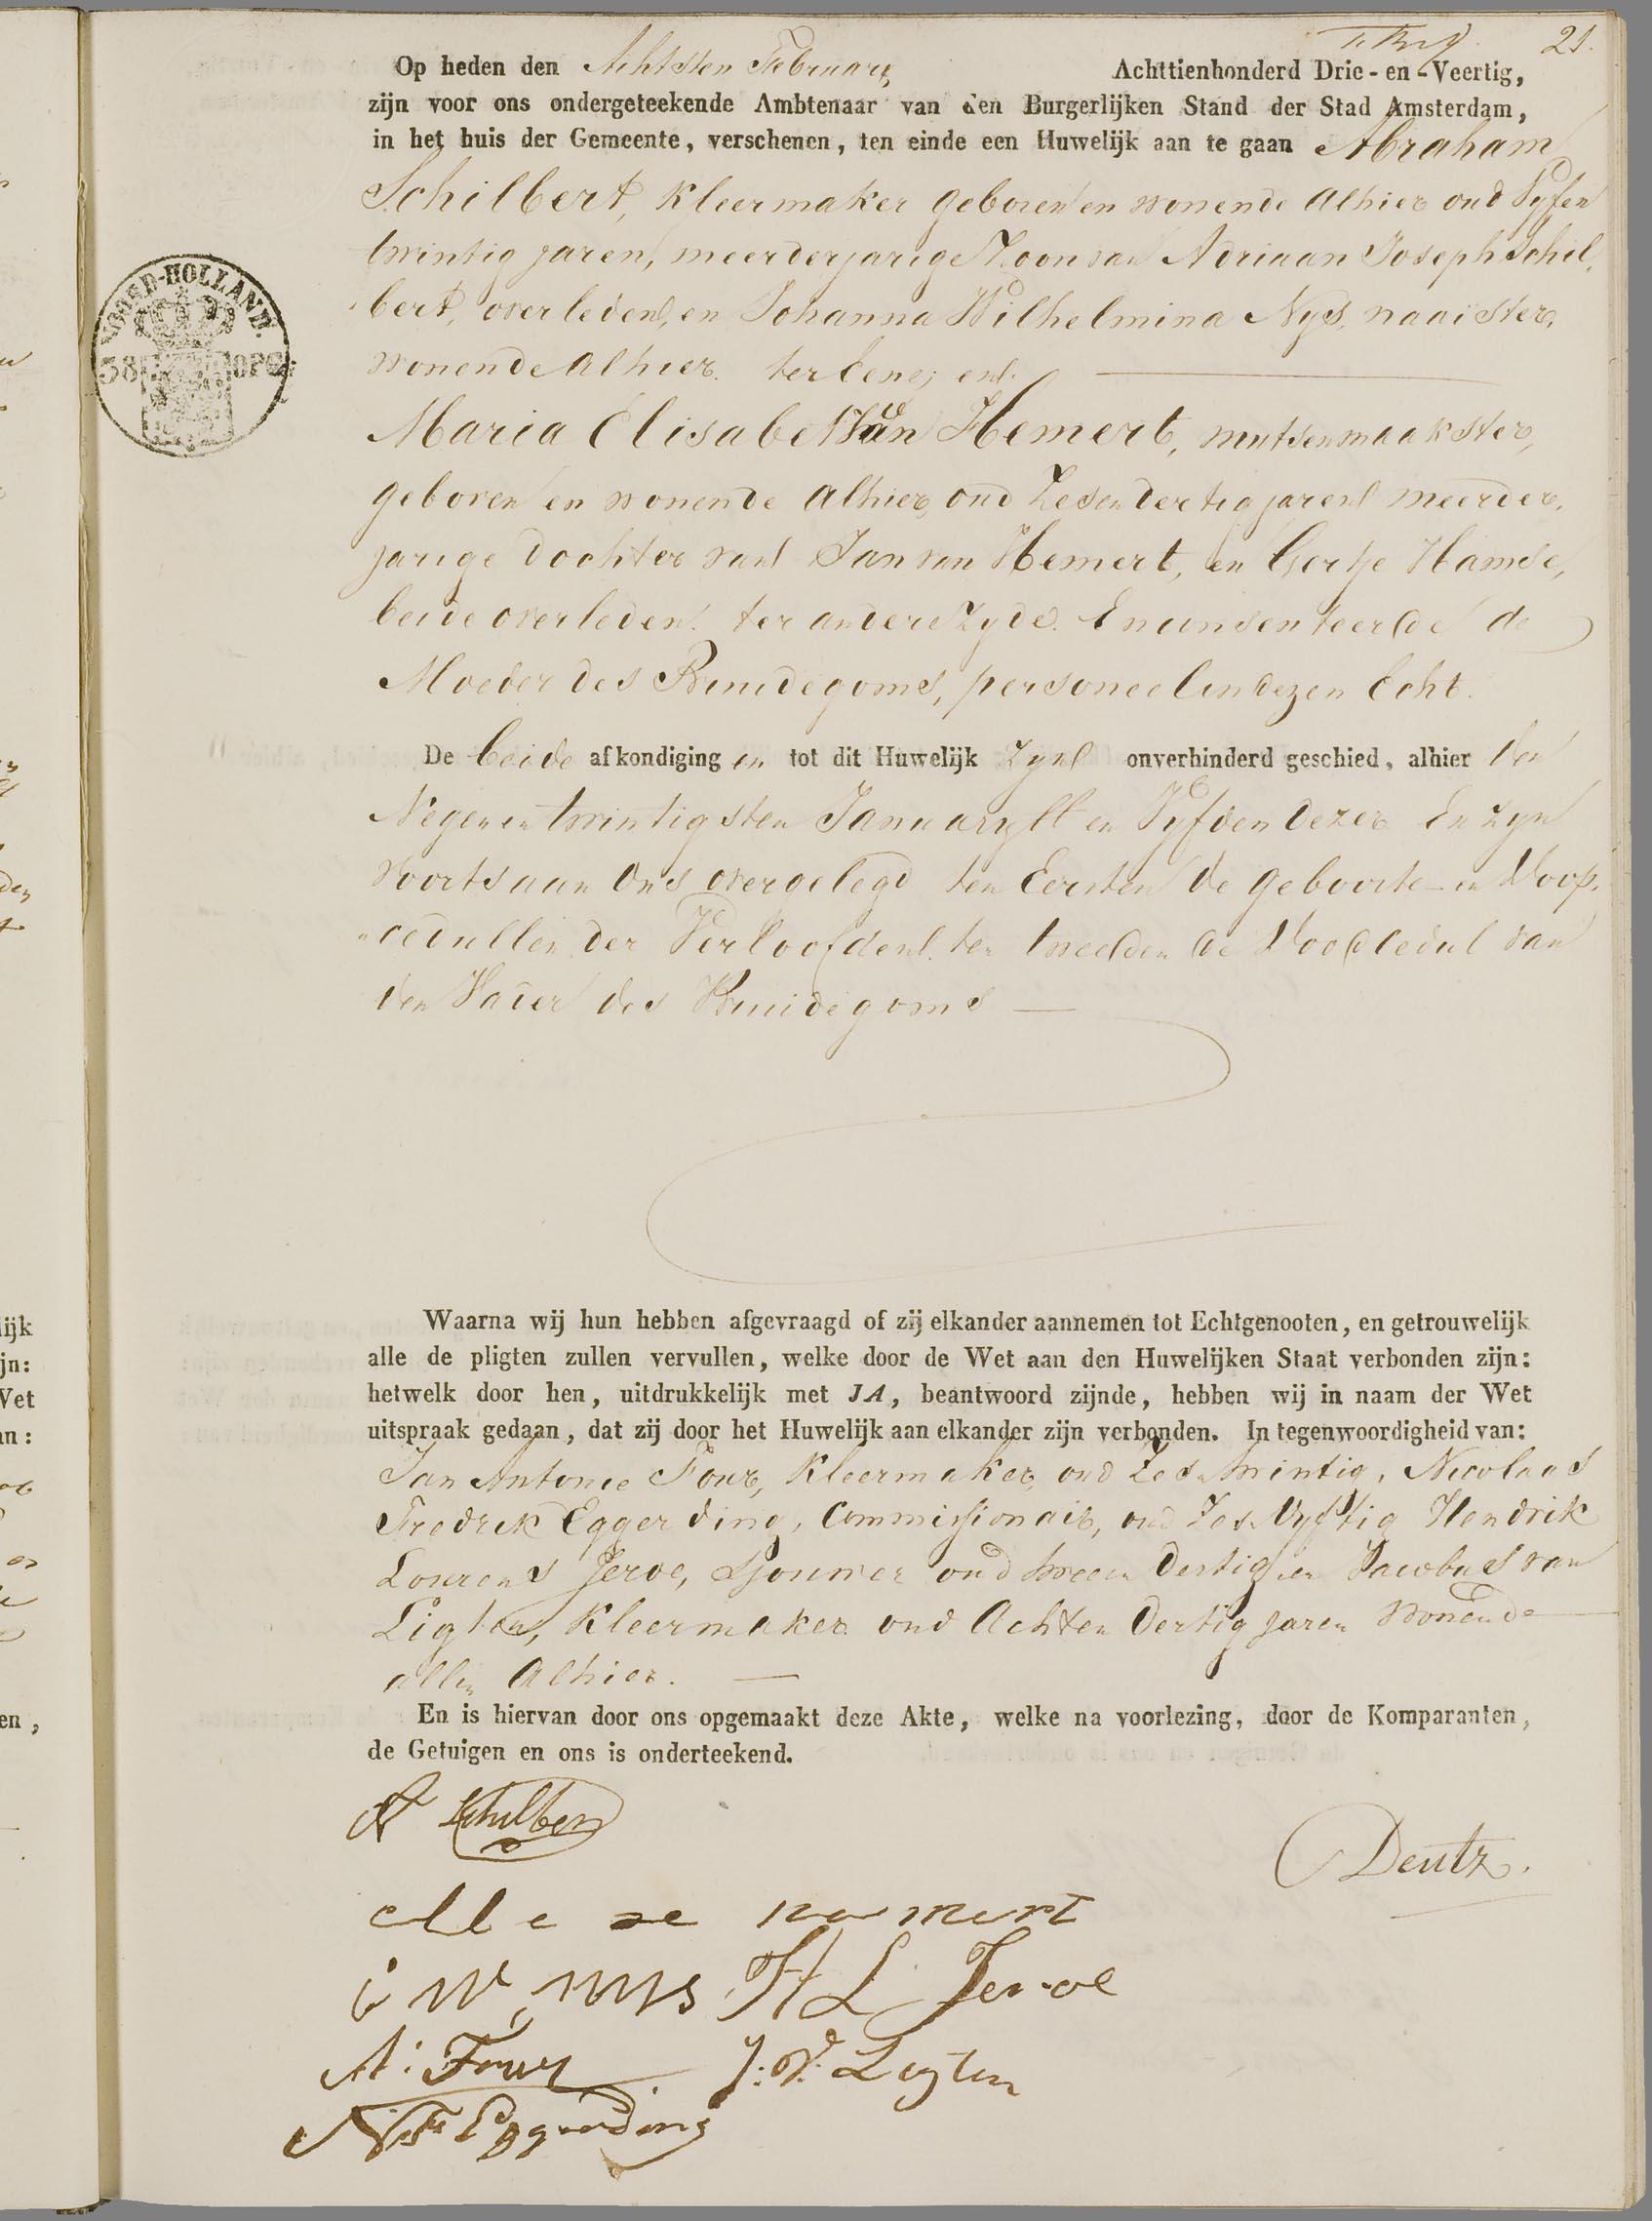 21.
Op heden den Achtsten Februarij Achttienhonderd Drie-en-Veertig,
zijn voor ons ondergeteekende Ambtenaar van den Burgerlijken Stand der Stad Amsterdam,
in het huis der Gemeente, verschenen, ten einde een Huwelijk aan te gaan Abraham
Schilbert, kleermaker geboren en wonende alhier oud Vyfen
twintig jaren, meerderjarige Zoon van Adriaan Joseph Schil„
„bert, overleden, en Johanna Wilhelmina Nys, naaister,
wonende alhier. ter eener en
Maria Elisabeth van Hemert, mutsenmaakster,
geboren en wonende alhier, oud Zesendertig jaren meerder„
jarige dochter van Jan van Hemert, en Gertje Hamse,
beide overleden. ter andere Zyde. En consenteerde de
Moeder des Bruidegoms, personeel in dezen Echt.
De beide afkondiging en tot dit Huwelijk zyn onverhinderd geschied, alhier den
Negenentwintigsten January ll en Vyfden dezer En zyn
voorts aan Ons overgelegd ten Eersten de geboorte- en Doop„
„cedullen der Verloofden. ten tweeden de Doodcedul van
den Vader des Bruidegoms
NOORD-HOLLAND.
38 OPC:
Waarna wij hun hebben afgevraagd of zij elkander aannemen tot Echtgenooten, en getrouwelijk
alle de pligten zullen vervullen, welke door de Wet aan den Huwelijken Staat verbonden zijn:
hetwelk door hen, uitdrukkelijk met JA, beantwoord zijnde, hebben wij in naam der Wet
uitspraak gedaan, dat zij door het Huwelijk aan elkander zijn verbonden. In tegenwoordigheid van:
Jan Antonie Four, kleermaker, oud Zesentwintig, Nicolaas
Fredrik Eggerding, Commissionair, oud Zes Vyftig Hendrik
Lourens Jeroe, Sjouwer oud tweeen Dertig en Jacobus van
Ligten, kleermaker oud Achten Dertig jaren wonende
allen Alhier.
En is hiervan door ons opgemaakt deze Akte, welke na voorlezing, door de Komparanten,
de Getuigen en ons is onderteekend.
A Schilbert
Deutz.
M e
W Nys H L Jeroe
A: Four J: V: Ligten
N F Eggerding